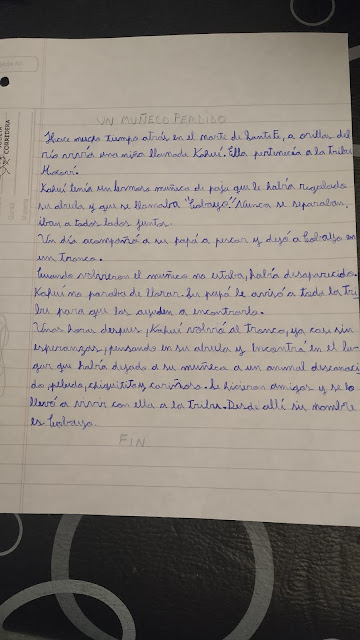 UN MUÑECO PERDIDO
Hace mucho tiempo atrás en el norte de Santa Fe, a orillas del
río vivía una niña llamada Kahuí. Ella pertenecía a la tribu
Mocoví.
Kahuí tenía un hermoso muñeco de paja que le había regalado
su abuela y que se llamaba "Cobayo". Nunca se separaban,
iban a todos lados juntos.
Un día acompañó a su papá a pescar y dejó a Cobayo en
un tronco.
Cuando volvieron el muñeco no estaba, había desaparecido.
Kahuí no paraba de llorar. Su papá le avisó a toda la tri
bu para que los ayuden a encontrarlo.
Unas horas despues, Kahuí volvió al tronco, ya casi sin
esperanzas, pensando en su abuela y encontró en el lu-
gar que había dejado a su muñeco a un animal desconoci
do, peludo, chiquitito y cariñoso. Se hicieron amigos y se lo
llevó a vivir con ella a la tribu. Desde allí su nombre
es Cobayo.
FIN
CORREDERA